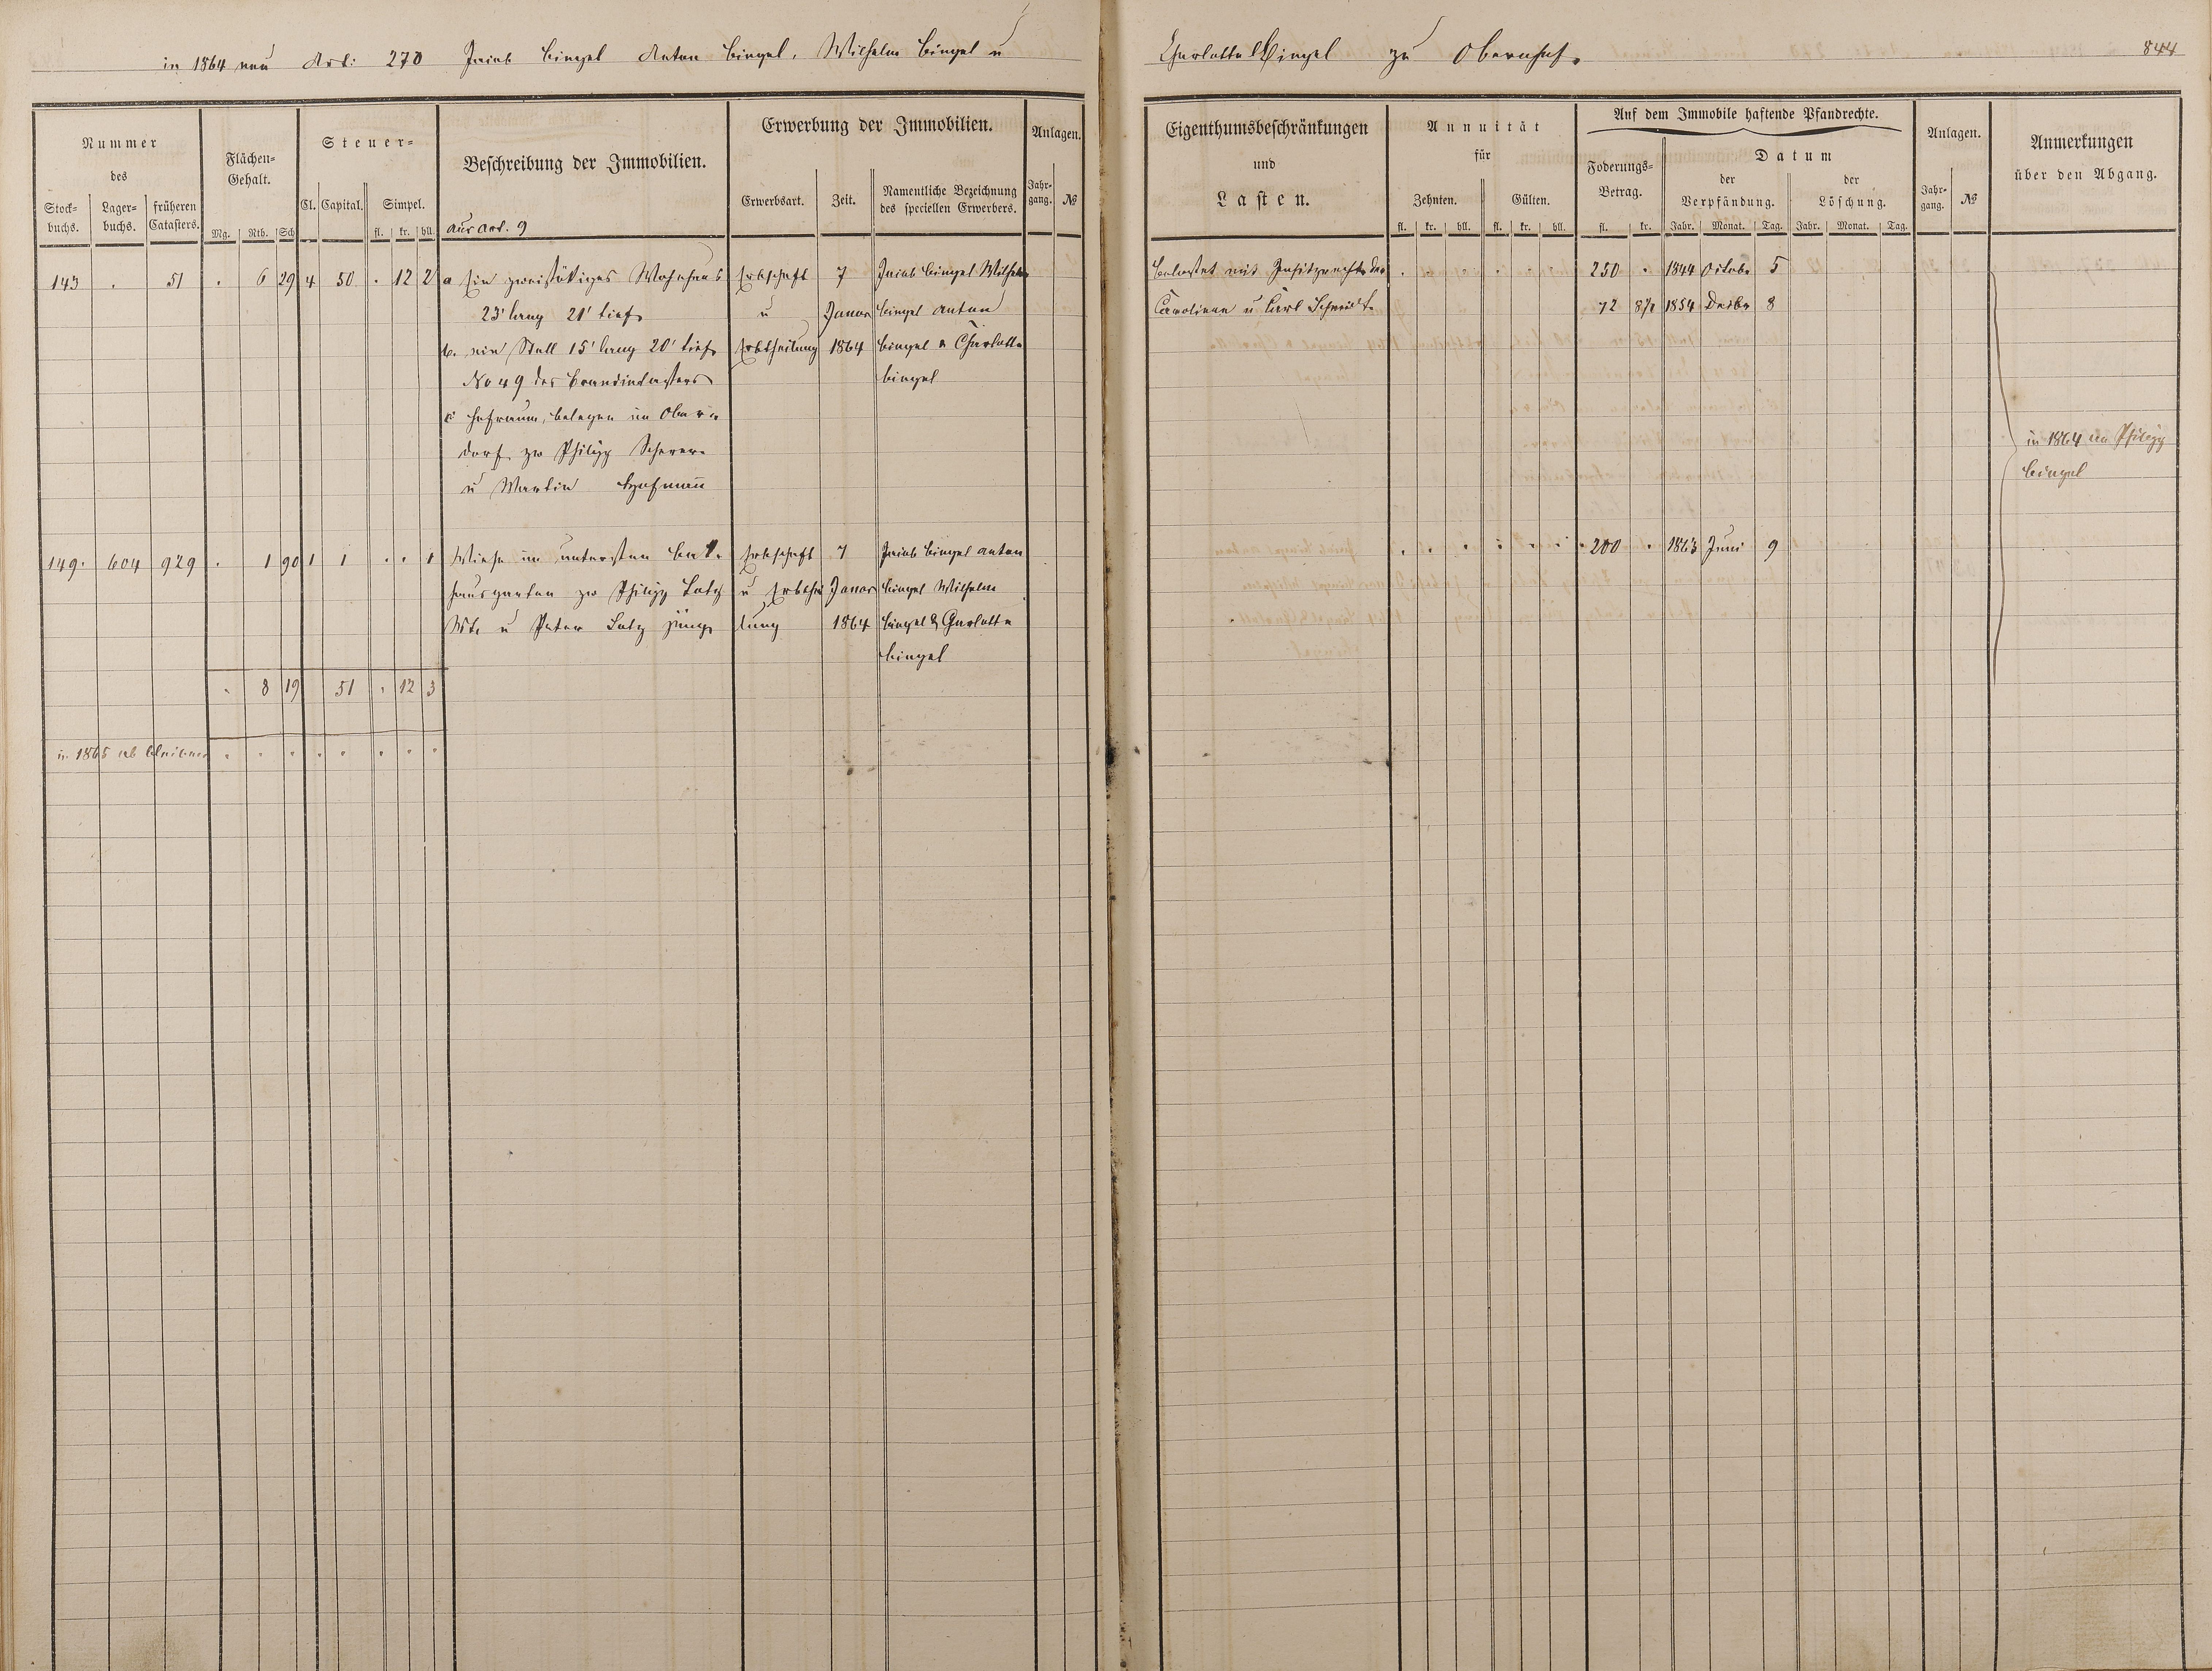 in 1864 neu Art: 270 Jacob Bingel Anton Bingel, Wilhelm Bingel u
Charlotte Bingel zu Obernhof.
844
Nummer
des
Stock-
buchs.
Lager-
buchs.
früheren
Catasters.
Flächen-
Gehalt.
Mg. Rth. Sch
Steuer-
Cl. Capital. Simpel.
fl. kr. hll.
Beschreibung der Immobilien.
aus Art. 9
Erwerbung der Immobilien.
Erwerbsart. Zeit.
Namentliche Bezeichnung
des speciellen Erwerbers.
Anlagen.
Jahr-
gang. №
Eigenthumsbeschränkungen
und
Lasten.
Annuität
für
Zehnten. Gülten.
fl. kr. hll. fl. kr. hll.
Auf dem Immobile haftende Pfandrechte.
Foderungs-
Betrag.
fl. kr.
Datum
der
Verpfändung.
Jahr. Monat. Tag.
der
Löschung.
Jahr. Monat. Tag.
Anlagen.
Jahr-
gang. №
Anmerkungen
über den Abgang.
143 . 51 . 6 29 4 50 . 12 2 a Ein zweistökiges Wohnhaus Erbschaft 7 Jacob Bingel Wilhelm
23' lang 21' tief u Januar Bingel Anton
b. ein Stall 15' lang 20' tief Erbtheilung 1864 Bingel & Charlotte
No 49 des Brandcatasters Bingel
c Hofraum, belegen im Ober-
dorf zw Philipp Scherer
u Martin Hofmann
belastet mit Insitzrecht der
Caroline u Carl Schmidt
250 . 1844 Octobr 5
72 1854 Decbr 8
in 1864 an Philipp
Bingel
149. 604 929 . 1 90 1 1 . . 1 Wiese im untersten Erbschaft 7 Jacob Bingel Anton
zw Philipp Lotz u Erbthei Januar Bingel Wilhelm
Wt. u Peter Lotz jung lung 1864 Bingel & Charlotte
Bingel
200 . 1863 Juni 9
. 8 19 51 . 12 3
in 1865 ab bleiben